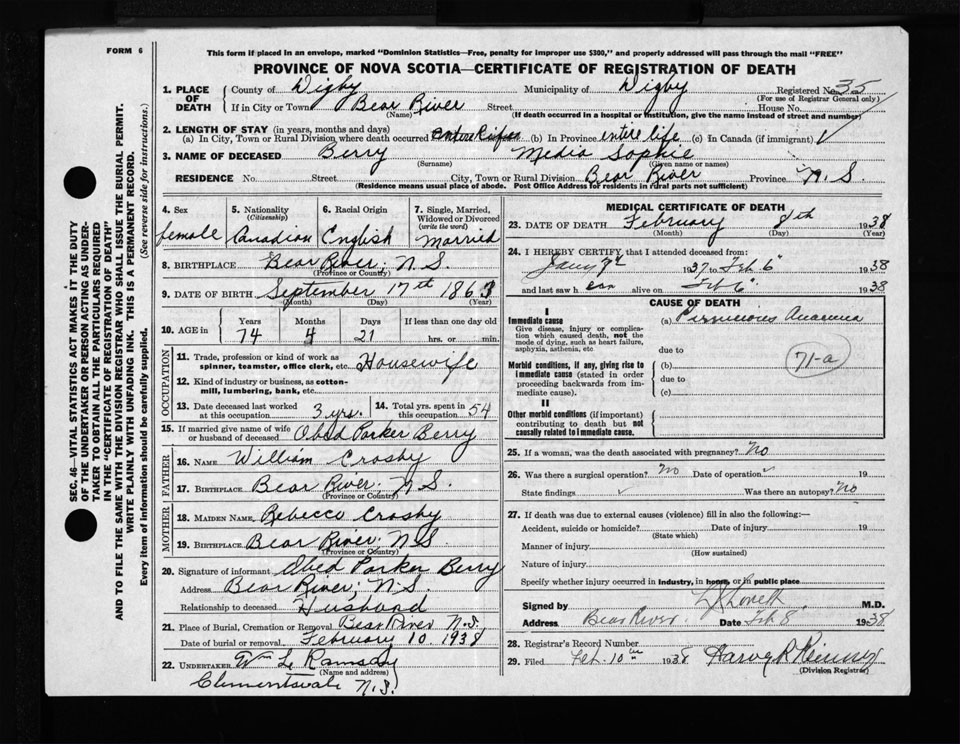 FORM 6
This form if placed in an envelope, marked "Dominion Statistics—Free, penalty for improper use $300," and properly addressed will pass through the mail "FREE"
PROVINCE OF NOVA SCOTIA—CERTIFICATE OF REGISTRATION OF DEATH
SEC. 46—VITAL STATISTICS ACT MAKES IT THE DUTY
OF THE UNDERTAKER OR PERSON ACTING AS UNDER-
TAKER TO OBTAIN ALL THE PARTICULARS REQUIRED
IN THE "CERTIFICATE OF REGISTRATION OF DEATH"
AND TO FILE THE SAME WITH THE DIVISION REGISTRAR WHO SHALL ISSUE THE BURIAL PERMIT.
WRITE PLAINLY WITH UNFADING INK. THIS IS A PERMANENT RECORD.
Every item of information should be carefully supplied. (See reverse side for instructions.)
1. PLACE OF DEATH County of Digby Municipality of Digby Registered No. 35
(For use of Registrar General only)
If in City or Town Bear River Street House No.
(Name) (If death occurred in a hospital or institution, give name instead of street and number)
2. LENGTH OF STAY (in years, months and days)
(a) In City, Town or Rural Division where death occurred entire life (b) In Province entire life (c) In Canada (if immigrant)
3. NAME OF DECEASED Berry Media Sophie
(Surname) (Given name or names)
RESIDENCE No. Street City, Town or Rural Division Bear River Province N.S.
(Residence means usual place of abode. Post Office Address for residents in rural parts not sufficient)
4. Sex female
5. Nationality (Citizenship) Canadian
6. Racial Origin English
7. Single, Married, Widowed or Divorced (write the word) Married
8. BIRTHPLACE Bear River, N.S.
(Province or Country)
9. DATE OF BIRTH September 17th 1863
(Month) (Day) (Year)
10. AGE in Years Months Days If less than one day
74 4 21 hrs. or min.
OCCUPATION
11. Trade, profession or kind of work as spinner, teamster, office clerk, etc. Housewife
12. Kind of industry or business, as cotton-mill, lumbering, bank, etc.
13. Date deceased last worked at this occupation 3 yrs. 14. Total yrs. spent in this occupation 54
15. If married give name of wife or husband of deceased Obed Parker Berry
FATHER
16. NAME William Crosby
17. BIRTHPLACE Bear River, N.S.
(Province or Country)
MOTHER
18. MAIDEN NAME Rebecca Crosby
19. BIRTHPLACE Bear River, N.S.
(Province or Country)
20. Signature of informant Obed Parker Berry
Address Bear River, N.S.
Relationship to deceased Husband
21. Place of Burial, Cremation or Removal Bear River N.S.
Date of burial or removal February 10, 1938
22. UNDERTAKER Wm L Ramsay
(Name and address)
Clementsvale N.S.
MEDICAL CERTIFICATE OF DEATH
23. DATE OF DEATH February 8th 1938
(Month) (Day) (Year)
24. I HEREBY CERTIFY that I attended deceased from:
1937 to Feb. 6" 1938
and last saw h er alive on Feb 6" 1938
CAUSE OF DEATH
I
Immediate cause (a) Pernicious Anaemia
Give disease, injury or complication which caused death, not the mode of dying, such as heart failure, asphyxia, asthenia, etc due to
71-a
Morbid conditions, if any, giving rise to immediate cause (stated in order proceeding backwards from immediate cause). (b) due to (c)
II
Other morbid conditions (if important) contributing to death but not causally related to immediate cause.
25. If a woman, was the death associated with pregnancy? No
26. Was there a surgical operation? No Date of operation 19
State findings Was there an autopsy? No
27. If death was due to external causes (violence) fill in also the following:—
Accident, suicide or homicide? Date of injury 19
(State which)
Manner of injury
(How sustained)
Nature of injury
Specify whether injury occurred in industry, in home, or in public place
Signed by Lovett M.D.
Address Bear River. Date Feb 8. 1938
28. Registrar's Record Number
29. Filed Feb. 10th 1938 Harvey R
(Division Registrar)